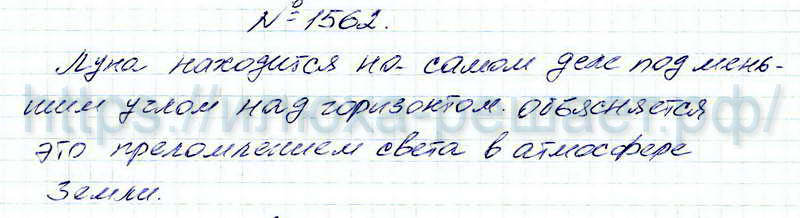 №1562.
Луна находится на самом деле под мень-
шим углом над горизонтом. объясняется
это преломлением света в атмосфере
Земли.
https://илюха-решает.рф/